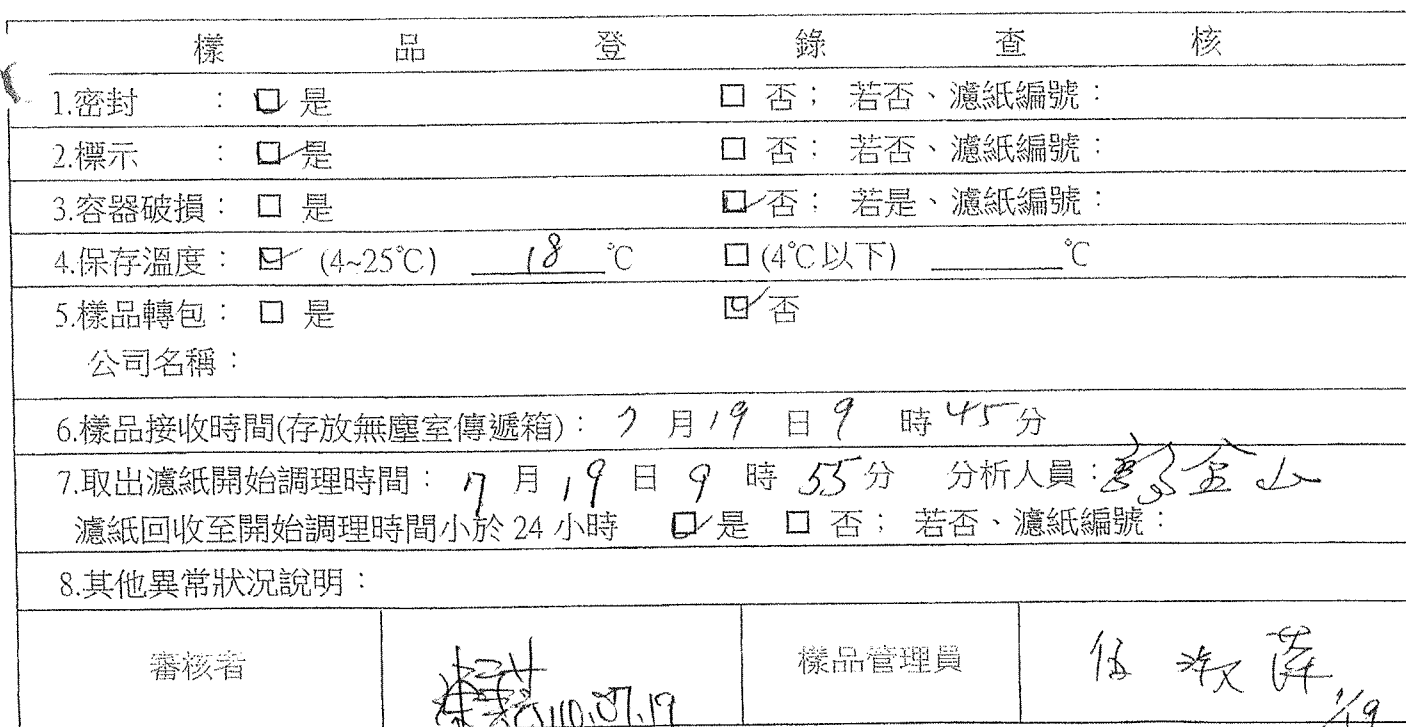 樣品登錄查核
1.密封 : ☑ 是 □ 否; 若否、濾紙編號:
2.標示 : ☑ 是 □ 否; 若否、濾紙編號:
3.容器破損: □ 是 ☑ 否; 若是、濾紙編號:
4.保存溫度: ☑ (4~25℃) 18 ℃ □ (4℃以下) ______℃
5.樣品轉包: □ 是 ☑ 否
公司名稱:
6.樣品接收時間(存放無塵室傳遞箱): 7 月 19 日 9 時 45 分
7.取出濾紙開始調理時間: 7 月 19 日 9 時 55 分 分析人員: 金山
濾紙回收至開始調理時間小於 24 小時 ☑ 是 □ 否; 若否、濾紙編號:
8.其他異常狀況說明:
審核者 110.07.19 樣品管理員 伍淑萍 7/19